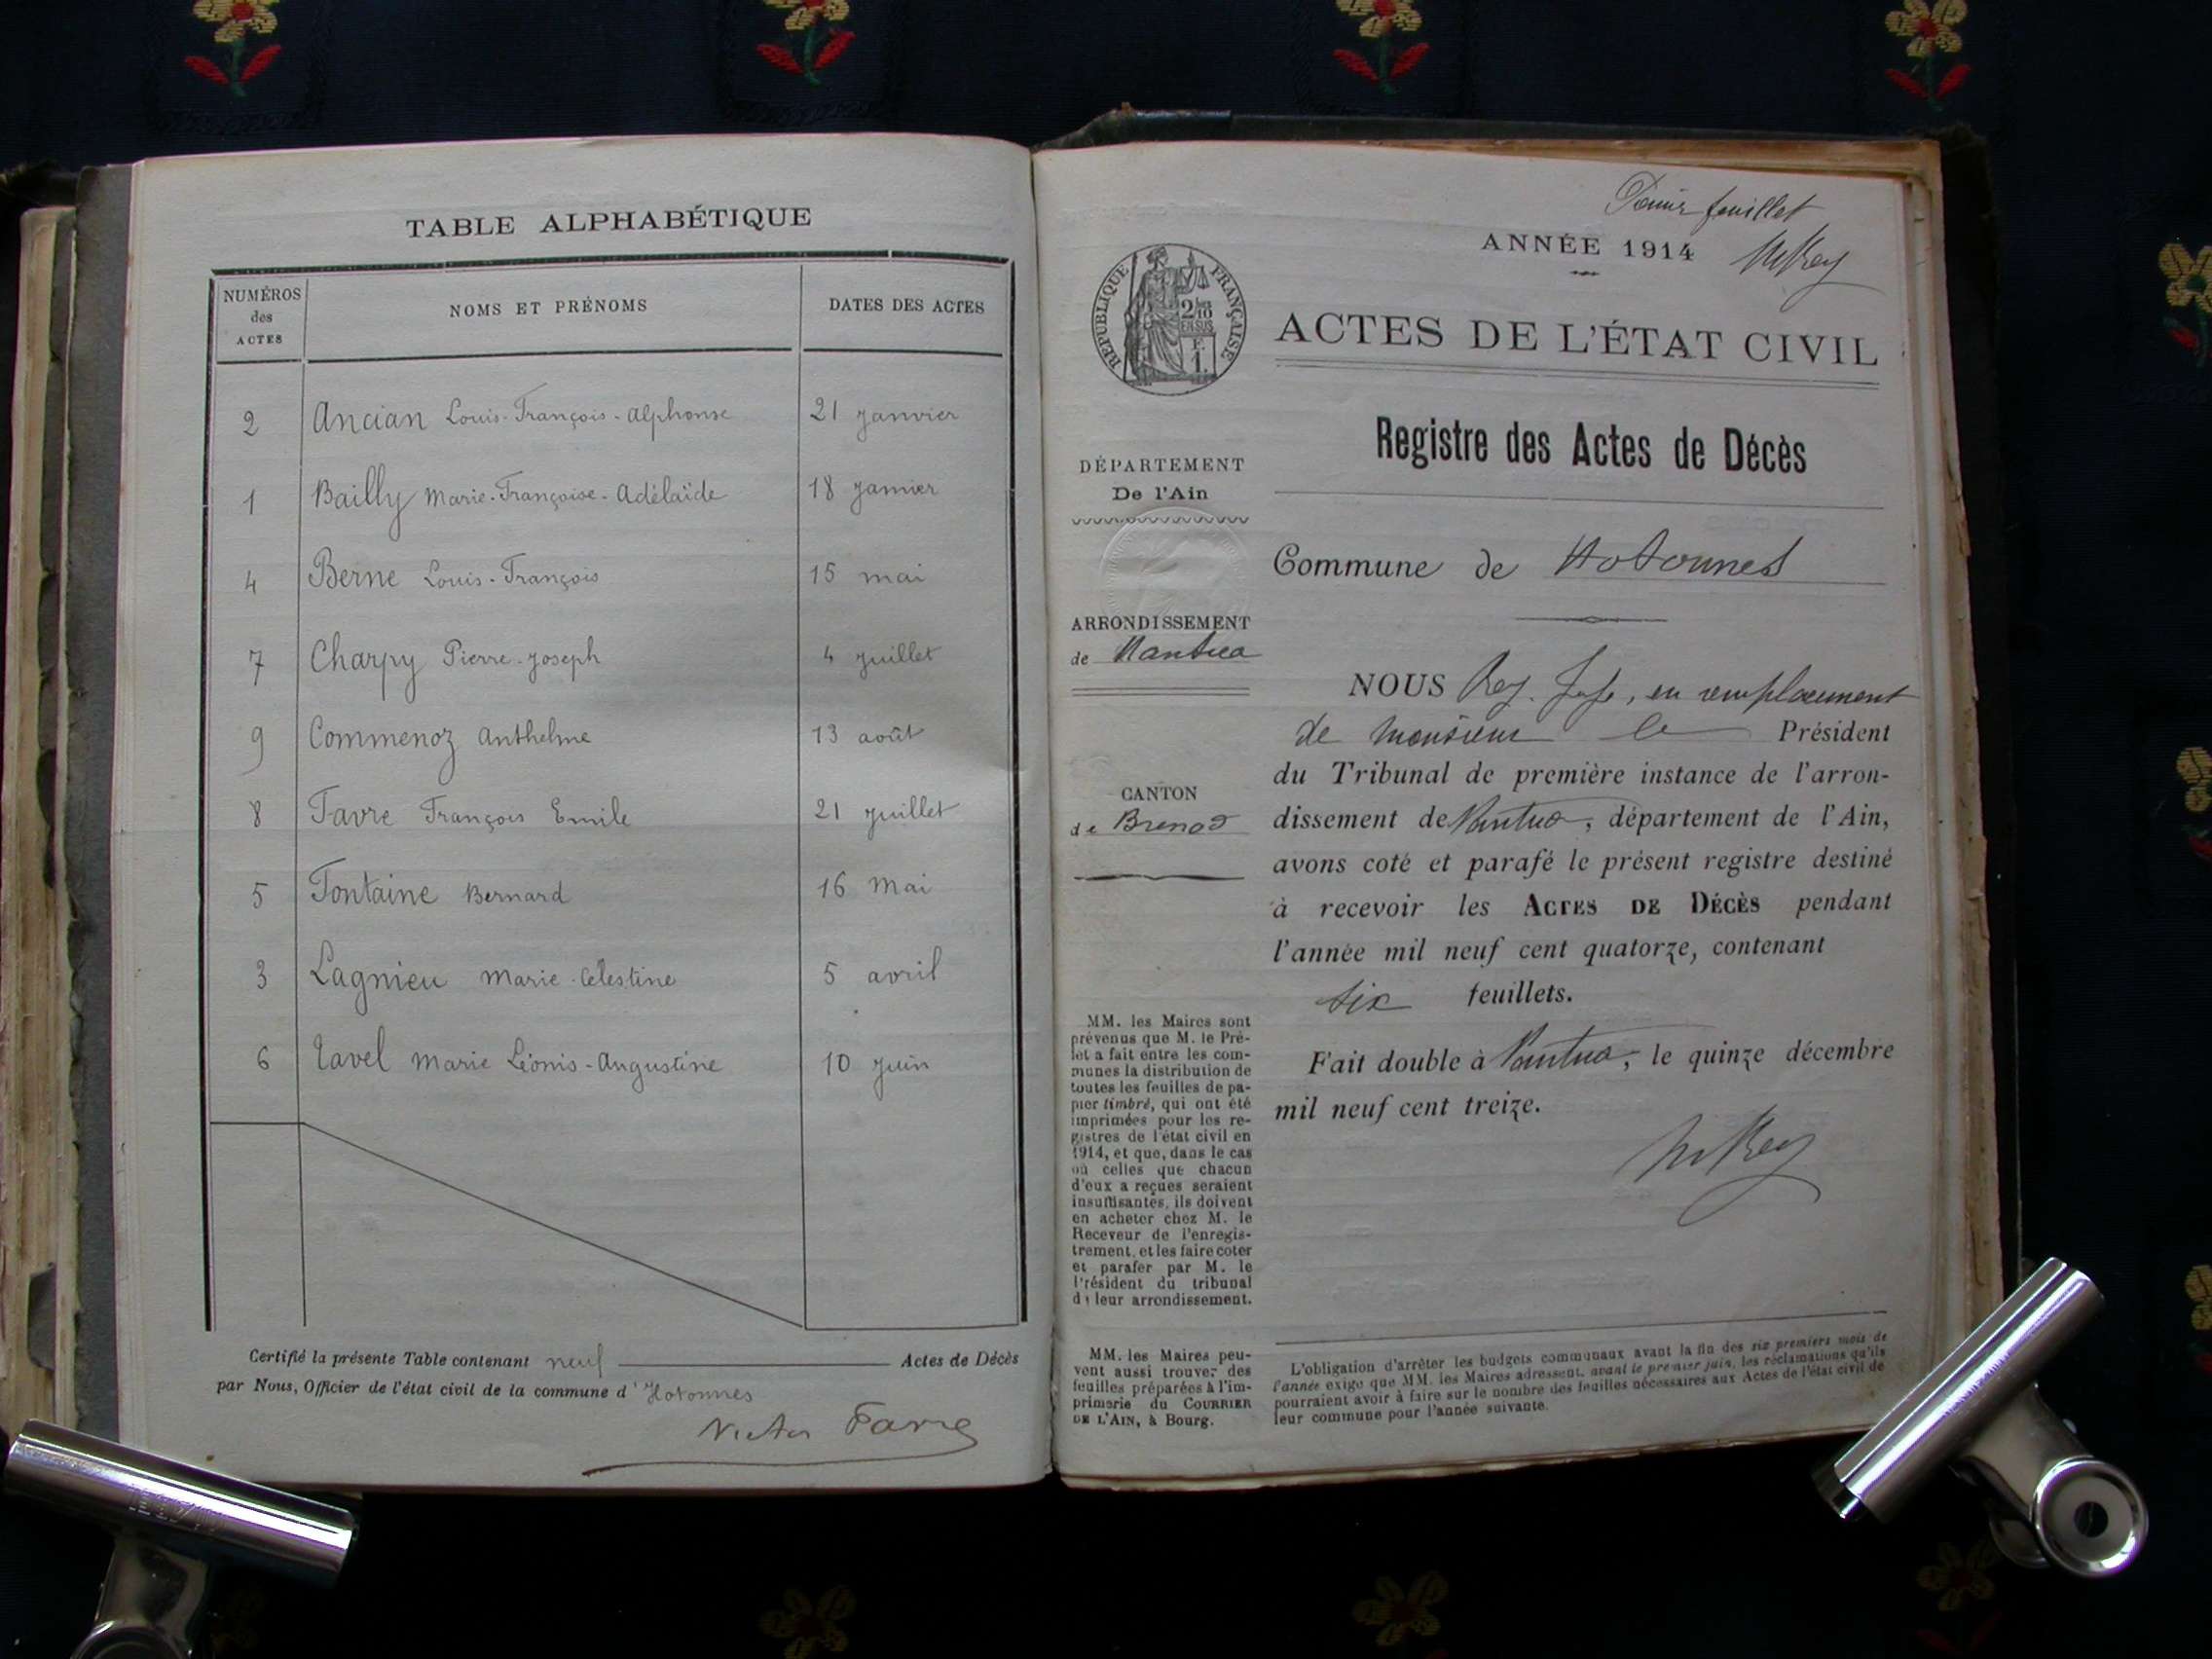 TABLE ALPHABÉTIQUE
NUMÉROS des ACTES
NOMS ET PRÉNOMS
DATES DES ACTES
2 Ancian Louis-François-Alphonse 21 janvier
1 Bailly Marie-Françoise-Adélaïde 18 janvier
4 Berne Louis-François 15 mai
7 Charpy Pierre-Joseph 4 juillet
9 Commenoz Anthelme 13 août
8 Favre François Emile 21 juillet
5 Fontaine Bernard 16 Mai
3 Lagnieu Marie-Célestine 5 avril
6 Tavel Marie Léonis-Augustine 10 juin
Certifié la présente Table contenant neuf Actes de Décès
par Nous, Officier de l'état civil de la commune d'Hotonnes
Victor Favre
feuillet
ANNÉE 1914
MRey
RÉPUBLIQUE FRANÇAISE
2/10
EN SUS
F.
1.
ACTES DE L'ÉTAT CIVIL
Registre des Actes de Décès
DÉPARTEMENT
De l'Ain
Commune de Hotonnes
ARRONDISSEMENT
de Nantua
CANTON
de Brenod
NOUS Rey, Juge, en remplacement
de Monsieur le Président
du Tribunal de première instance de l'arron-
dissement de Nantua, département de l'Ain,
avons coté et parafé le présent registre destiné
à recevoir les ACTES DE DÉCÈS pendant
l'année mil neuf cent quatorze, contenant
six feuillets.
Fait double à Nantua, le quinze décembre
mil neuf cent treize.
MRey
MM. les Maires sont
prévenus que M. le Pré-
fet a fait entre les com-
munes la distribution de
toutes les feuilles de pa-
pier timbré, qui ont été
imprimées pour les re-
gistres de l'état civil en
1914, et que, dans le cas
où celles que chacun
d'eux a reçues seraient
insuffisantes, ils doivent
en acheter chez M. le
Receveur de l'enregis-
trement, et les faire coter
et parafer par M. le
Président du tribunal
de leur arrondissement.
MM. les Maires peu-
vent aussi trouver des
feuilles préparées à l'im-
primerie du COURRIER
DE L'AIN, à Bourg.
L'obligation d'arrêter les budgets communaux avant la fin des six premiers mois de
l'année exige que MM. les Maires adressent, avant le premier juin, les réclamations qu'ils
pourraient avoir à faire sur le nombre des feuilles nécessaires aux Actes de l'état civil de
leur commune pour l'année suivante.